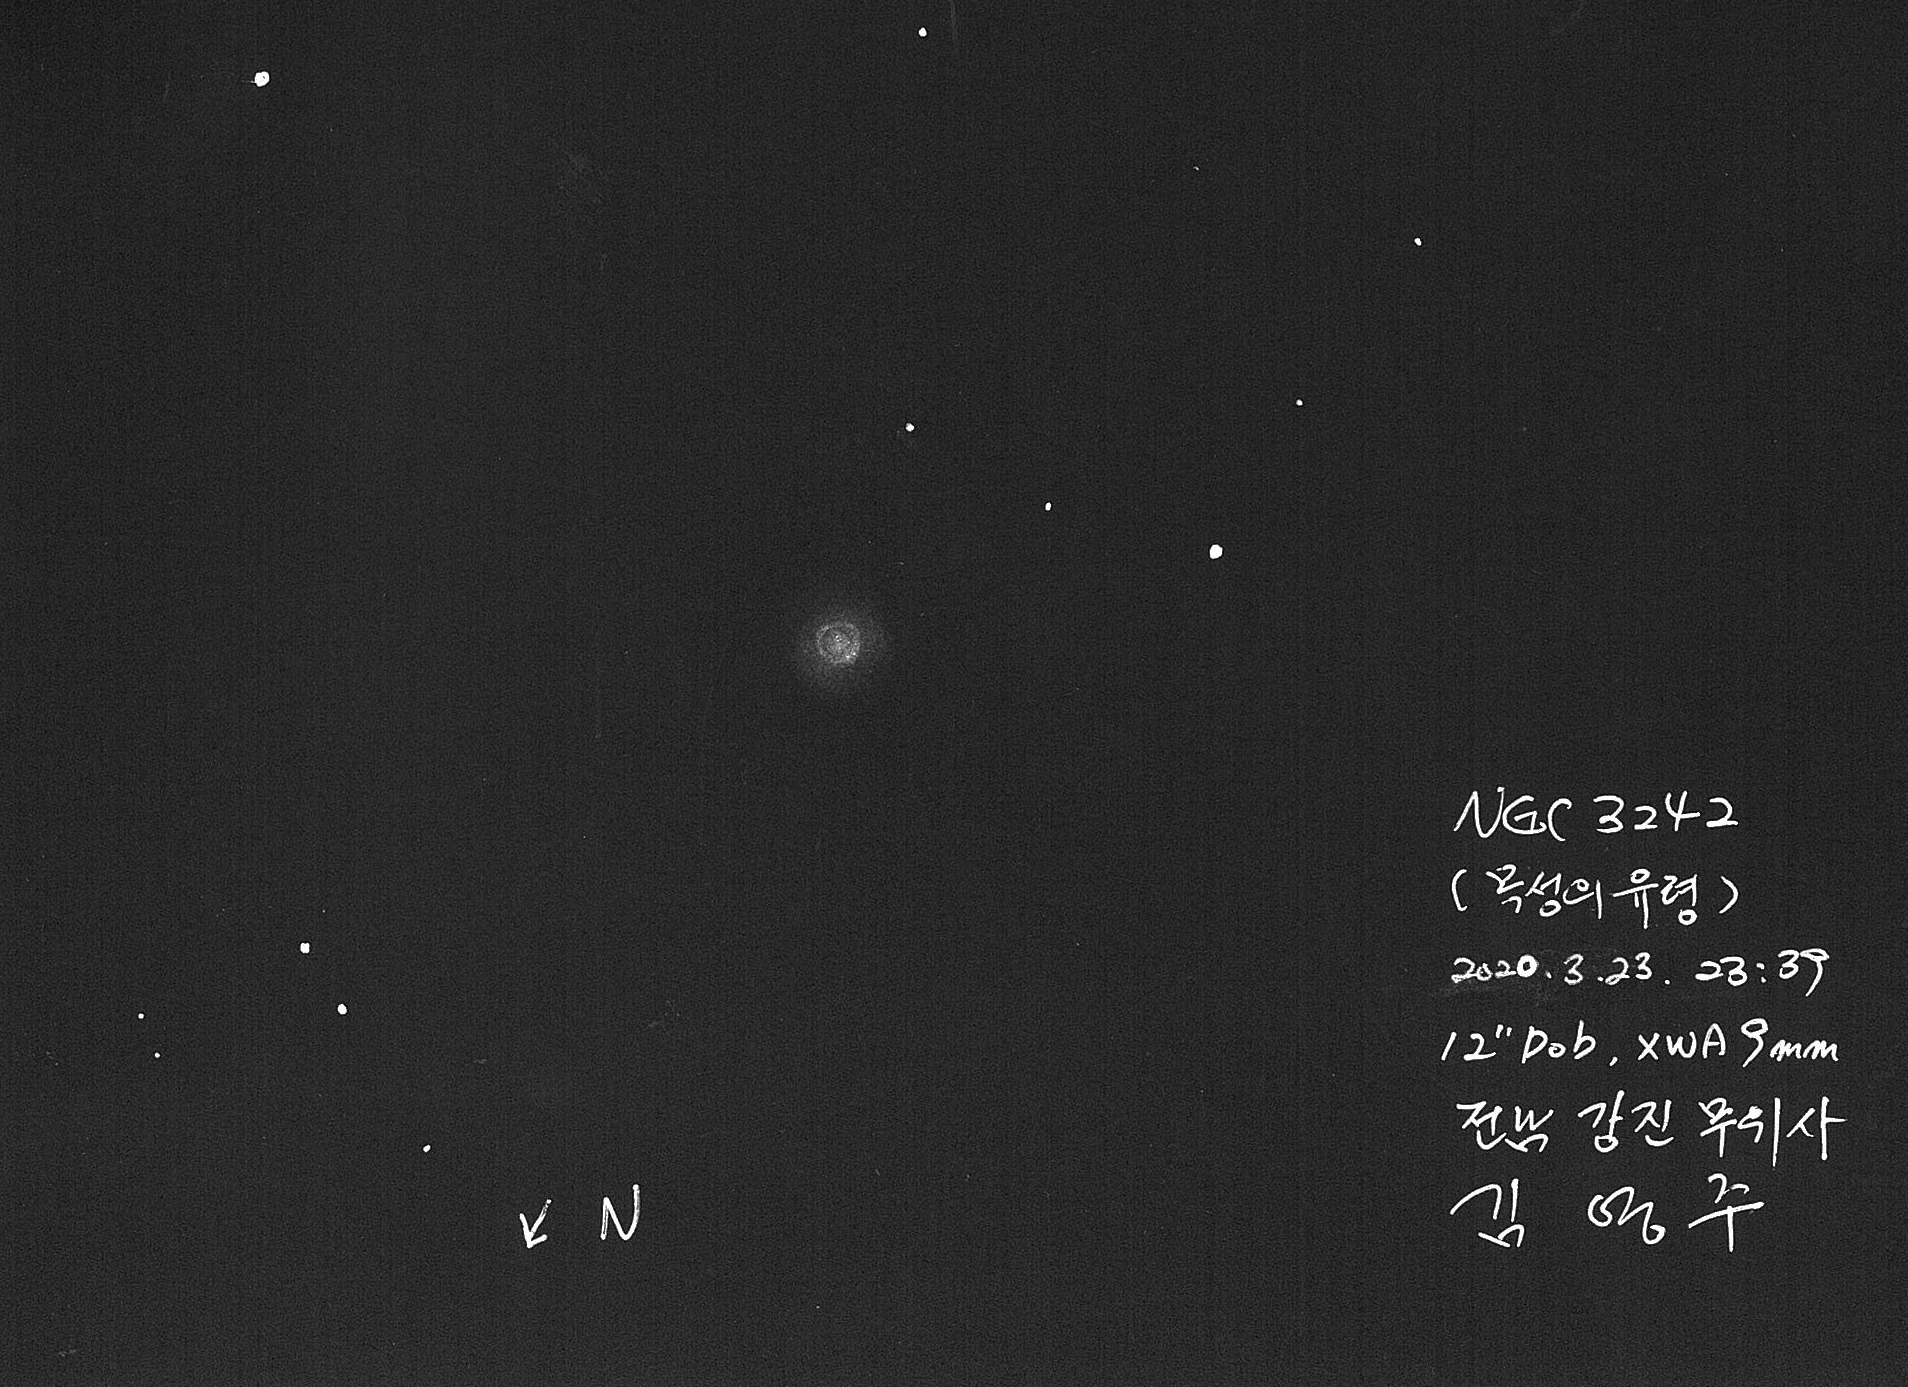 NGC 3242
(목성의 유령)
2020.3.23. 23:39
12" Dob, XWA 9mm
전남 강진 무위사
김 영 주
↙ N